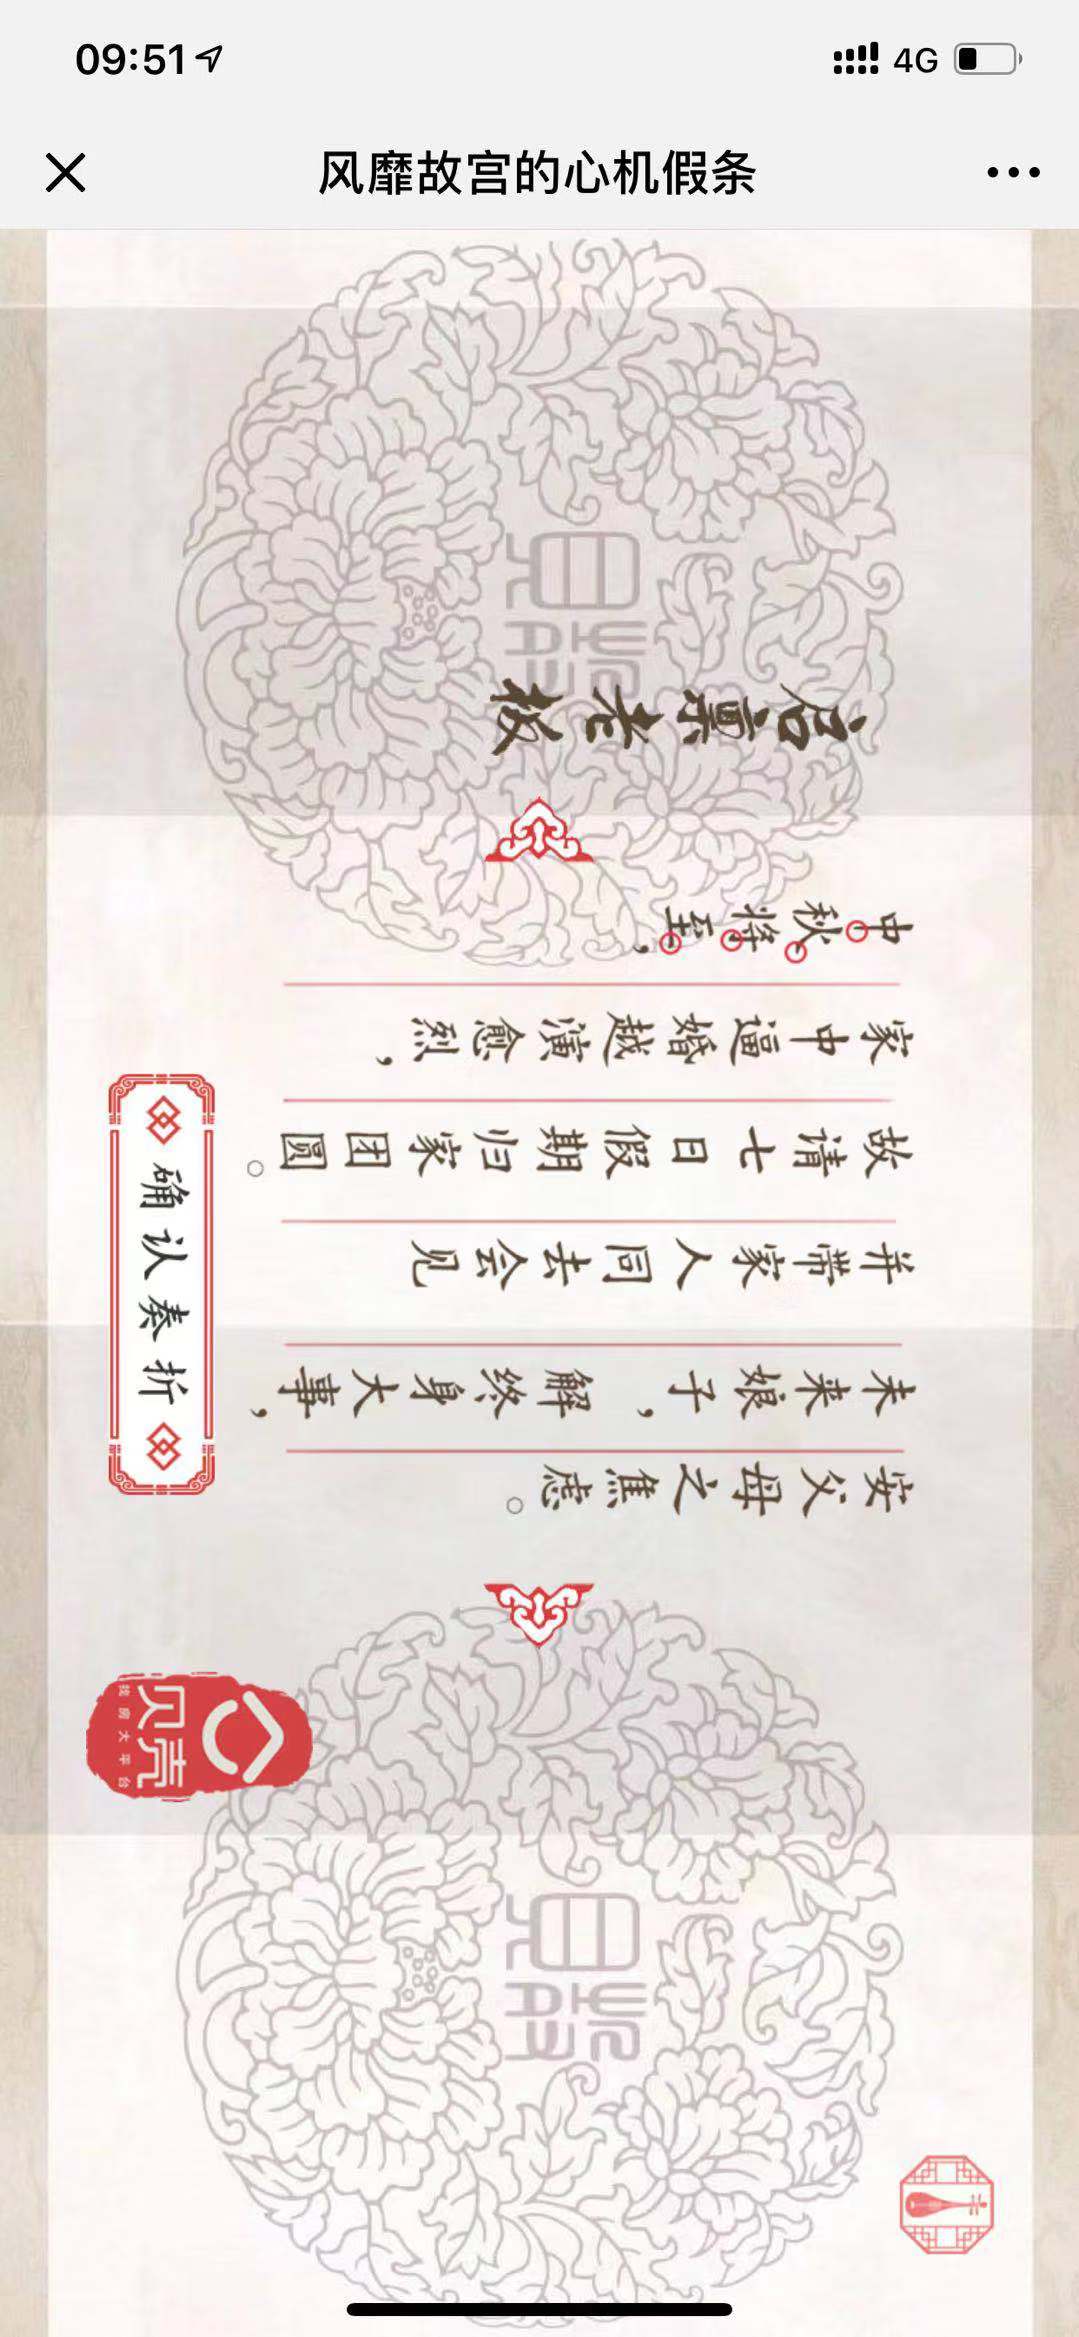 09:51
4G
风靡故宫的心机假条
启禀老板
中秋将至，
家中逼婚越演愈烈，
故请七日假期归家团圆。
并带家人同去会见
未来娘子，解终身大事，
安父母之焦虑。
确认奏折
贝壳
找房大平台